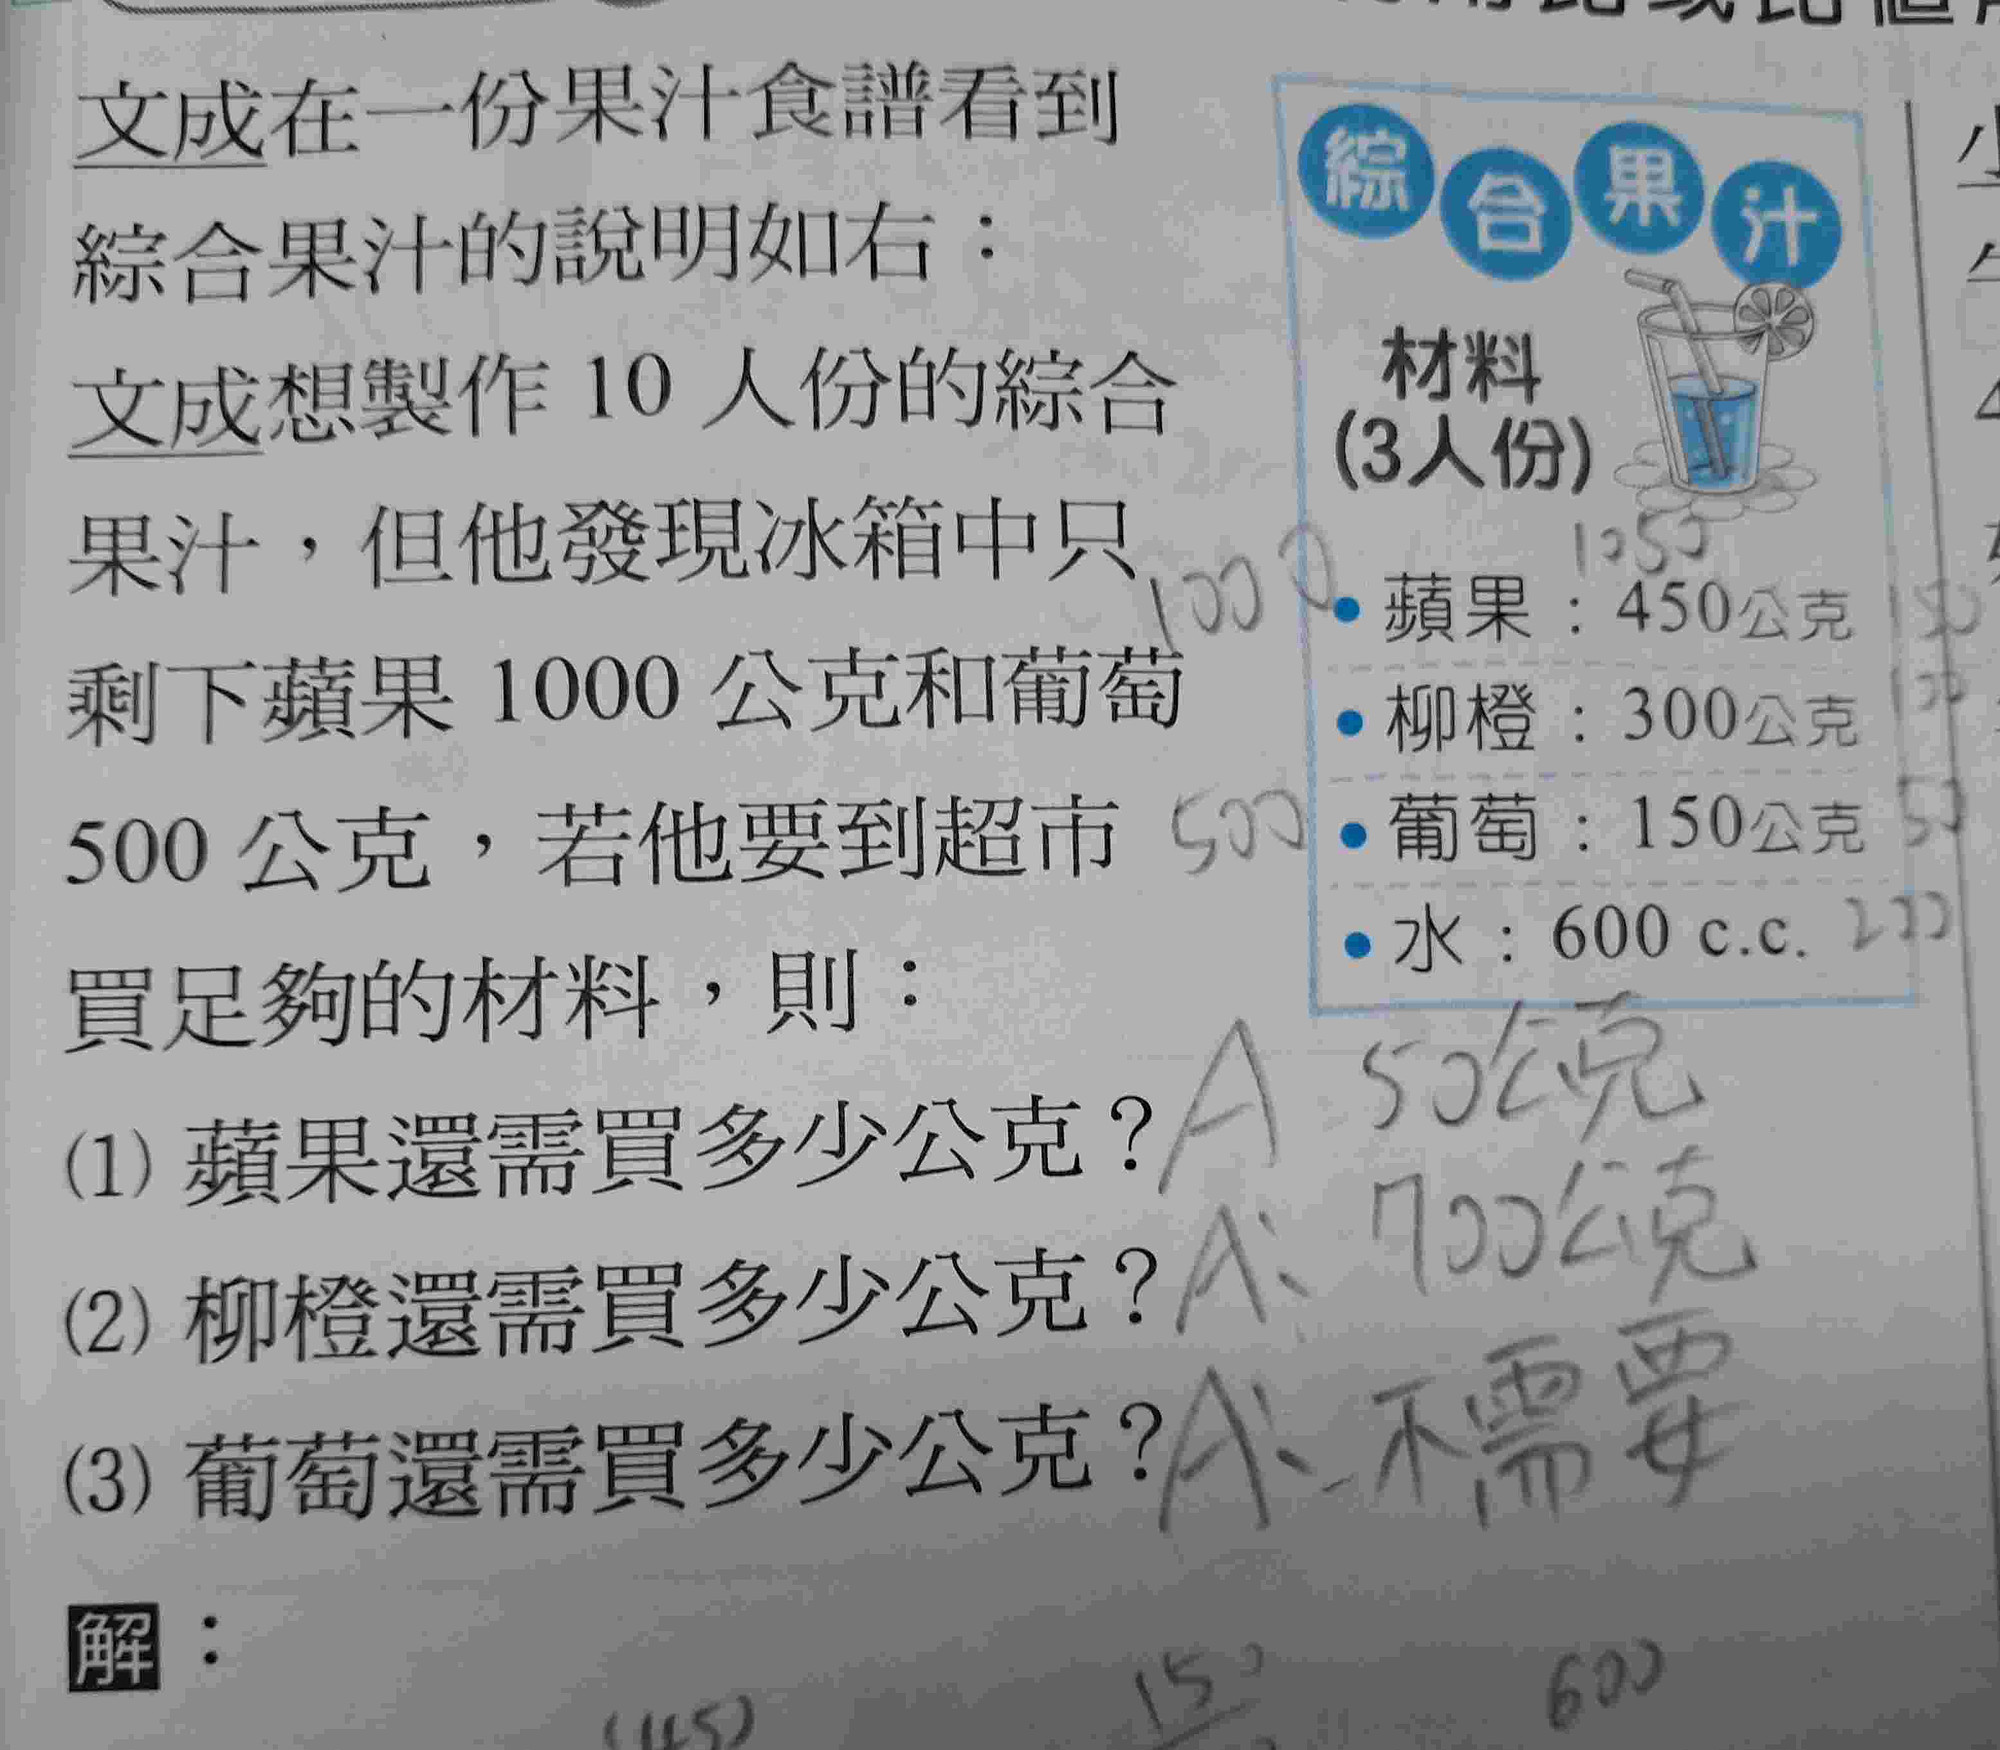 文成在一份果汁食譜看到
綜合果汁的說明如右：
文成想製作 10 人份的綜合
果汁，但他發現冰箱中只
剩下蘋果 1000 公克和葡萄
500 公克，若他要到超市
買足夠的材料，則：
(1) 蘋果還需買多少公克？
(2) 柳橙還需買多少公克？
(3) 葡萄還需買多少公克？
解：
綜合果汁
材料
(3人份)
1050
1000
• 蘋果：450公克 150
• 柳橙：300公克 100
500
• 葡萄：150公克 50
• 水：600 c.c. 200
A 50公克
A、700公克
A、不需要
(45)
150
600